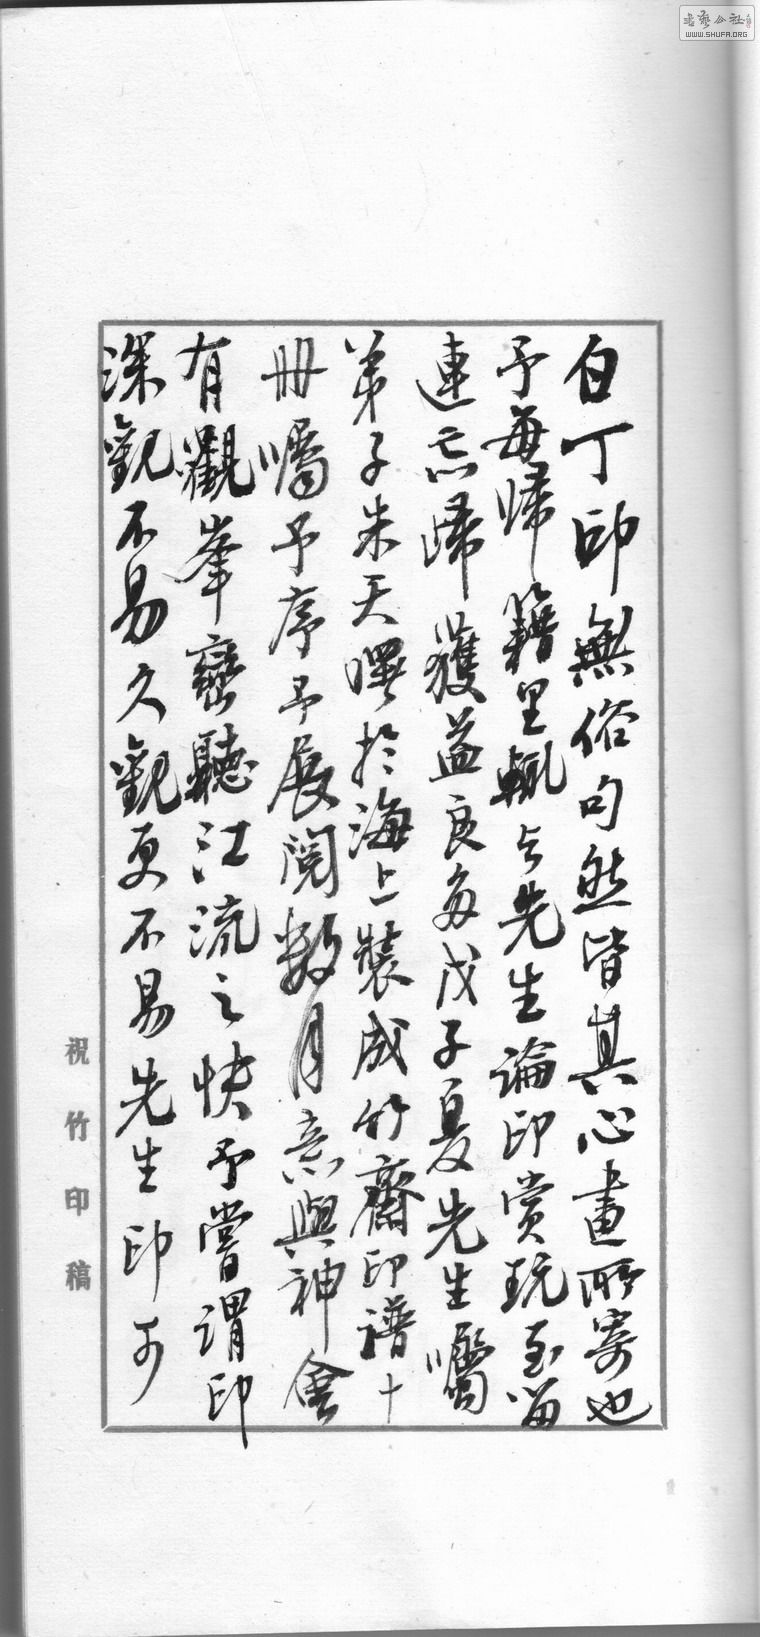 白丁印無俗句然皆其心畫所寄也
予每歸籍里輒与先生論印賞玩至留
連忘歸獲益良多戊子夏先生囑
弟子朱天曙於海上裝成竹齋印譜十
冊囑予序予展閱數月意與神會
有觀峯巒聽江流之快予嘗謂印
深觀不易久觀更不易先生印可
祝竹印稿
書藝公社
WWW.SHUFA.ORG